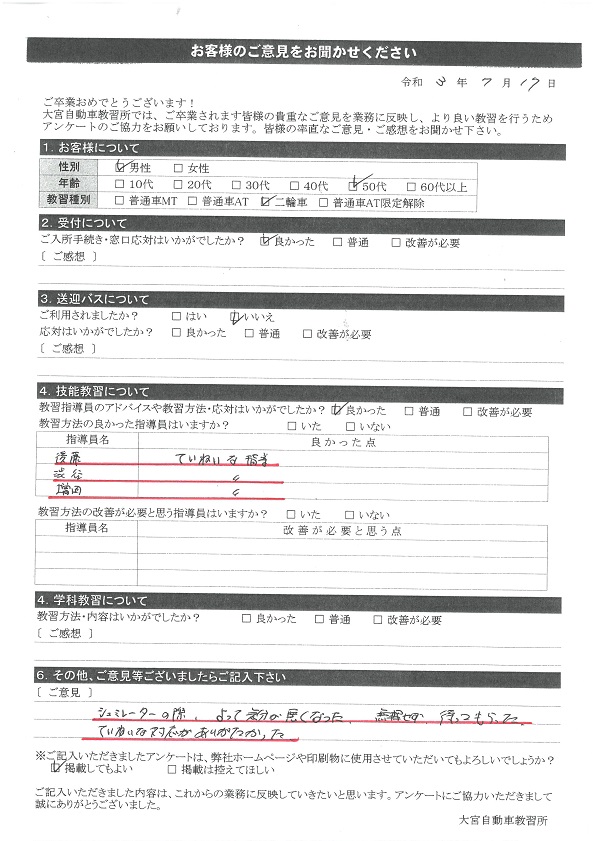 お客様のご意見をお聞かせください
令和 3 年 7 月 17 日
ご卒業おめでとうございます！
大宮自動車教習所では、ご卒業されます皆様の貴重なご意見を業務に反映し、より良い教習を行うため
アンケートのご協力をお願いしております。皆様の率直なご意見・ご感想をお聞かせ下さい。
1. お客様について
性別 ☑男性 □女性
年齢 □10代 □20代 □30代 □40代 ☑50代 □60代以上
教習種別 □普通車MT □普通車AT ☑二輪車 □普通車AT限定解除
2. 受付について
ご入所手続き・窓口応対はいかがでしたか？ ☑良かった □普通 □改善が必要
〔 ご感想 〕
3. 送迎バスについて
ご利用されましたか？ □はい ☑いいえ
応対はいかがでしたか？ □良かった □普通 □改善が必要
〔 ご感想 〕
4. 技能教習について
教習指導員のアドバイスや教習方法・応対はいかがでしたか？ ☑良かった □普通 □改善が必要
教習方法の良かった指導員はいますか？ □いた □いない
指導員名 良かった点
後藤 ていねいな指導
渋谷 〃
増田 〃
教習方法の改善が必要と思う指導員はいますか？ □いた □いない
指導員名 改善が必要と思う点
4. 学科教習について
教習方法・内容はいかがでしたか？ □良かった □普通 □改善が必要
〔 ご感想 〕
6. その他、ご意見等ございましたらご記入下さい
〔 ご意見 〕
シュミレーターの際、よって気分が悪くなった、無理せず 待ってもらった
ていねいな対応がありがたかった
※ご記入いただきましたアンケートは、弊社ホームページや印刷物に使用させていただいてもよろしいでしょうか？
☑掲載してもよい □掲載は控えてほしい
ご記入いただきました内容は、これからの業務に反映していきたいと思います。アンケートにご協力いただきまして
誠にありがとうございました。
大宮自動車教習所